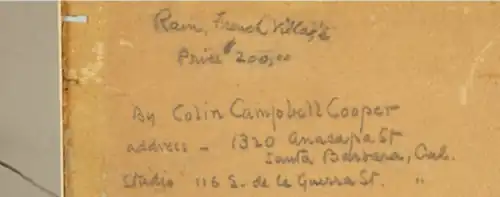 Rain, French Village
Price $200.00
By Colin Campbell Cooper
address - 1320 Anacapa St
Santa Barbara, Cal.
Studio 116 E. de la Guerra St. "